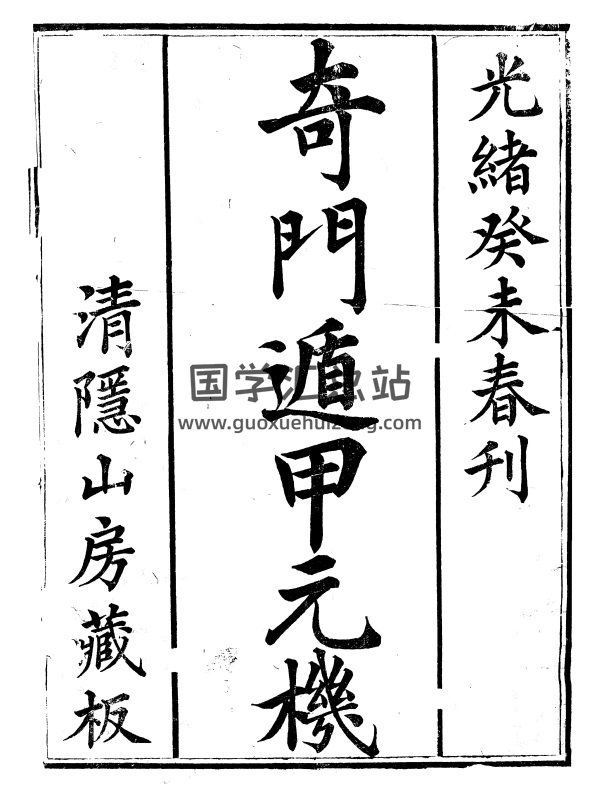 光緒癸未春刊
奇門遁甲元機
清隱山房藏板
国学汇总站
www.guoxuehuizong.com